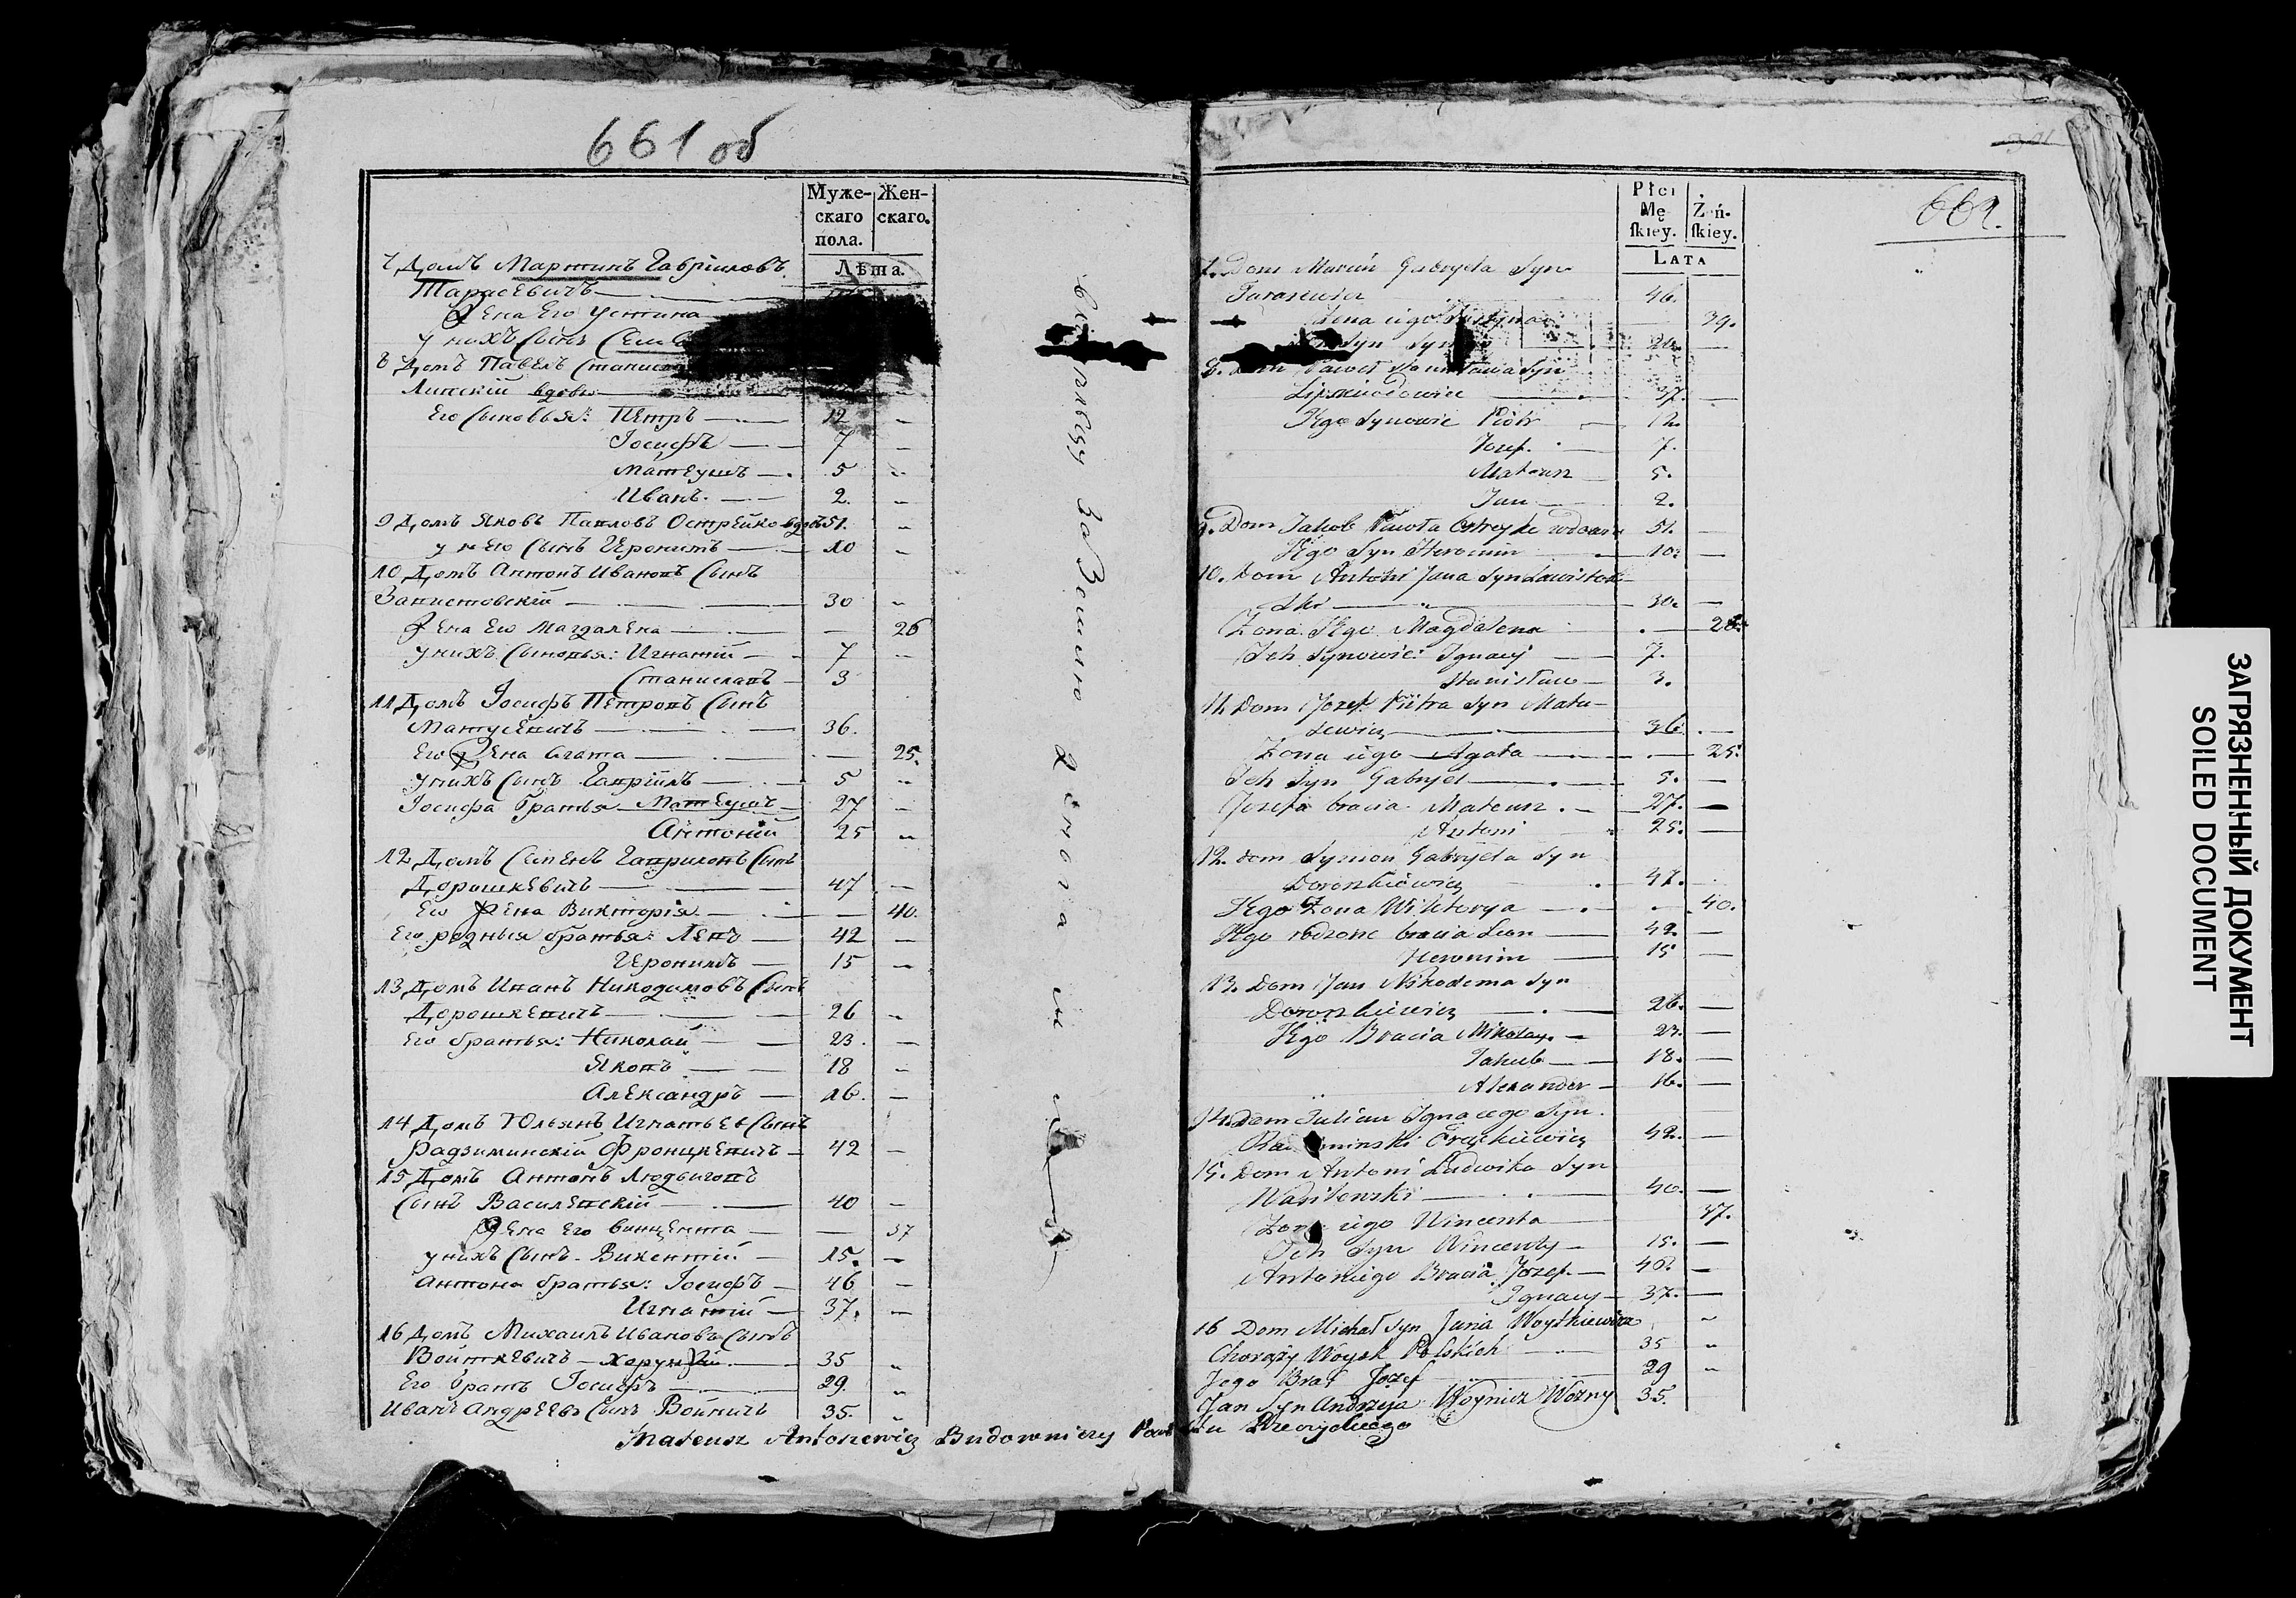 661 об
Муже- Жен-
скаго скаго.
пола.
Лѣта.
7 Домъ Мартинъ Гавріиловъ
Тарасевичъ
Жена Его Устина
у нихъ Сынъ
8 Домъ Павелъ
Липскій вдовъ
Его Сыновья: Петръ — 12 —
Іосифъ — 7 —
Матеушъ — 5 —
Иванъ — 2. —
9 Домъ Яковъ Павловъ Острейко вдовъ 51. —
у него Сынъ Иеронимъ — 10 —
10 Домъ Антонъ Ивановъ Сынъ
Завистовскій — 30 —
Жена Его Магдалена — — 26
у нихъ Сыновья: Игнатій — 7 —
Станиславъ — 3
11 Домъ Іосифъ Петровъ Сынъ
Матусевичъ — 36.
Его Жена Агата — — 25.
у нихъ Сынъ Гавріилъ — 5 —
Іосифа Братья Матеушъ — 27 —
Антоній 25 —
12 Домъ Семенъ Гавриловъ Сынъ
Дорошкевичъ — 47 —
Его Жена Викторія — — 40.
Его родныя братья: Левъ — 42 —
Иеронимъ — 15 —
13 Домъ Иванъ Никодимовъ Сынъ
Дорошкевичъ — 26 —
Его братья: Николай — 23. —
Яковъ — 18 —
Александръ — 16. —
14 Домъ Юльянъ Игнатьев Сынъ
Радзиминскій Фронцкевичъ — 42 —
15 Домъ Антонъ Людвиговъ
Сынъ Василевскій — 40 —
Жена Его Винцента — — 37
у нихъ Сынъ Викентій — 15. —
Антона братья: Іосифъ — 46 —
Игнатій — 37. —
16 Домъ Михаилъ Ивановъ Сынъ
Войткевичъ — хорунжій — 35 „
Его братъ Іосифъ — 29. „
Иванъ Андреевъ Сынъ Войничъ 35. „
за Землю
662.
Płci
Mę- Żeń-
ſkiey. ſkiey.
LATA
7. Dom Marcin Gabryela Syn
Tarasewicz 46.
Żona iego Justyna 39.
Syn
8. Dom Paweł Stanisława Syn
Lipski wdowiec — 37. —
Jego Synowie Piotr — 12
Jozef. — 7.
Mateusz 5.
Jan 2.
9. Dom Jakub Pawła Ostreyko wdowiec 51. —
Jego Syn Hieronim — 10. —
10. Dom Antoni Jana Syn Zawistow-
ski — 30. —
Żona Jego Magdalena — 26.
Ich Synowie: Ignacy — 7.
Stanisław — 3.
11. Dom Jozef Piotra Syn Matu-
sewicz — 36. —
Żona iego Agata — — 25.
Ich Syn Gabryel — 5. —
Jozefa bracia Mateusz. — 27. —
Antoni 25. —
12. dom Symon Gabryela Syn
Doroszkiewicz — 47.
Jego Żona Wiktorya — 40.
Jego rodzone bracia Leon — 42 —
Heronim — 15 —
13. Dom Jan Nikodema Syn
Doroszkiewicz — 26. —
Jego Bracia Mikolay. — 23. —
Jakub — 18. —
Alexander — 16. —
14. Dom Julian Ignacego Syn.
Frąckiewicz 42. —
15. Dom Antoni Ludwika Syn
Wasilewski — 40. —
Żona iego Wincenta — 37.
Ich Syn Wincenty — 15. —
Antoniego Bracia Jozef. — 46. —
Ignacy — 37. —
16 Dom Michał Syn Jana Woytkiewicz „
Chorąży Woysk Polskich — 35 „
Jego Brat Jozef 29 „
Jan Syn Andrzeja Woynicz Wozny 35.
Mateusz Antonewicz Budowniczy
ЗАГРЯЗНЕННЫЙ ДОКУМЕНТ
SOILED DOCUMENT